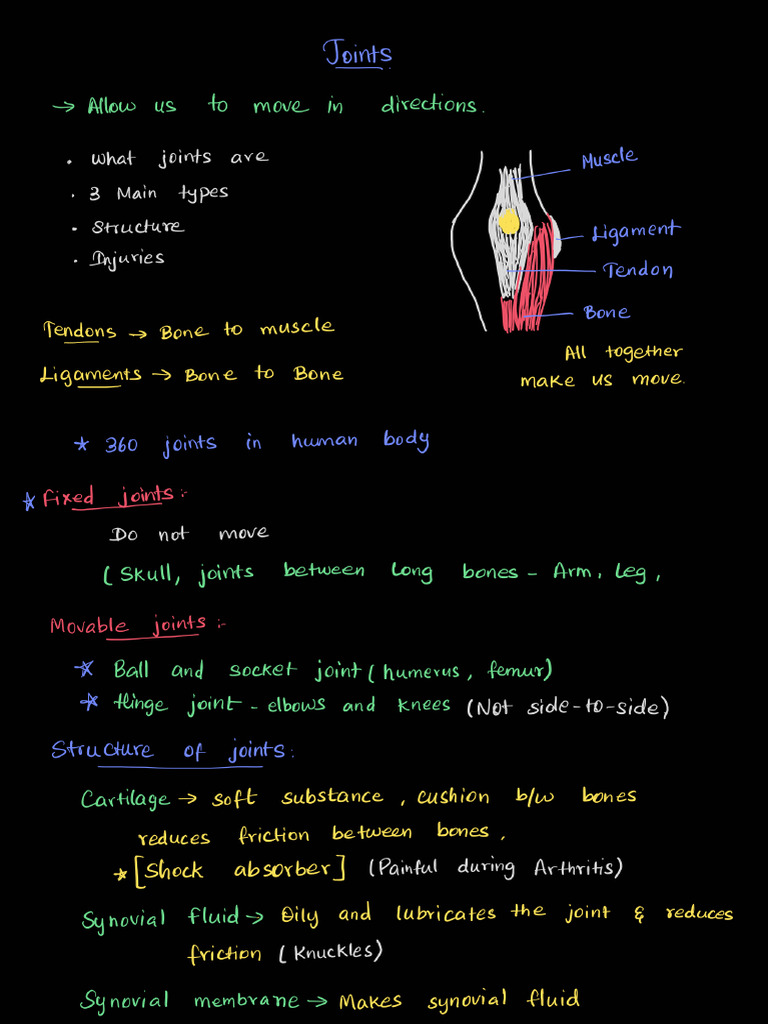 Joints
→ Allow us to move in directions.
• What joints are
• 3 Main types
• Structure
• Injuries
Muscle
Ligament
Tendon
Bone
All together
make us move.
Tendons → Bone to muscle
Ligaments → Bone to Bone
* 360 joints in human body
* Fixed joints:-
Do not move
(Skull, joints between long bones - Arm, Leg,
Movable joints:-
* Ball and socket joint (humerus, femur)
* Hinge joint - elbows and knees (Not side-to-side)
Structure of joints:
Cartilage → soft substance, cushion b/w bones
reduces friction between bones,
* [Shock absorber] (Painful during Arthritis)
Synovial fluid → Oily and lubricates the joint & reduces
friction (Knuckles)
Synovial membrane → Makes synovial fluid